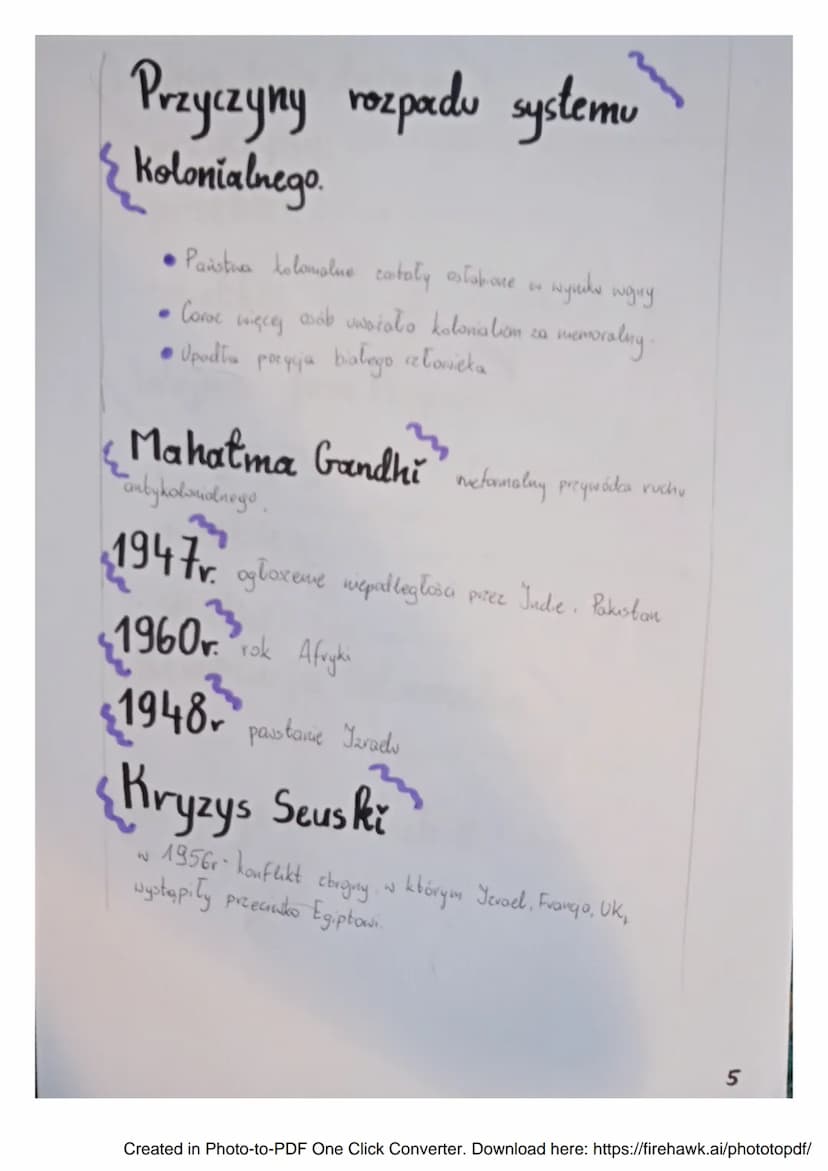 Przyczyny rozpadu systemu
kolonialnego.
Państwa kolonialne zostały osłabione w wyniku wojny
Coraz więcej osób uważało kolonializm za niemoralny.
Upadła pozycja białego człowieka
Mahatma Gandhi nieformalny przywódca ruchu
antykolonialnego.
1947r. ogłoszenie niepodległości przez Indie. Pakistan
1960r. rok Afryki
1948r powstanie Izraelu
Kryzys Seuski
w 1956r- konflikt zbrojny w którym Izrael, Francja, UK,
wystąpiły przeciwko Egiptowi.
5
Created in Photo-to-PDF One Click Converter. Download here: https://firehawk.ai/phototopdf/